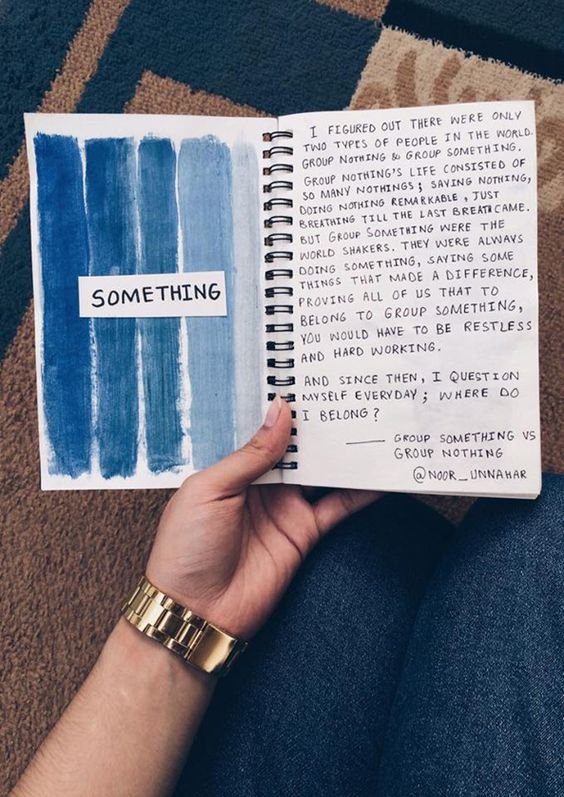 SOMETHING
I FIGURED OUT THERE WERE ONLY
TWO TYPES OF PEOPLE IN THE WORLD.
GROUP NOTHING & GROUP SOMETHING.
GROUP NOTHING'S LIFE CONSISTED OF
SO MANY NOTHINGS; SAYING NOTHING,
DOING NOTHING REMARKABLE, JUST
BREATHING TILL THE LAST BREATH CAME.
BUT GROUP SOMETHING WERE THE
WORLD SHAKERS. THEY WERE ALWAYS
DOING SOMETHING, SAYING SOME
THINGS THAT MADE A DIFFERENCE,
PROVING ALL OF US THAT TO
BELONG TO GROUP SOMETHING,
YOU WOULD HAVE TO BE RESTLESS
AND HARD WORKING.
AND SINCE THEN, I QUESTION
MYSELF EVERYDAY; WHERE DO
I BELONG?
—— GROUP SOMETHING VS
GROUP NOTHING
@NOOR_UNNAHAR